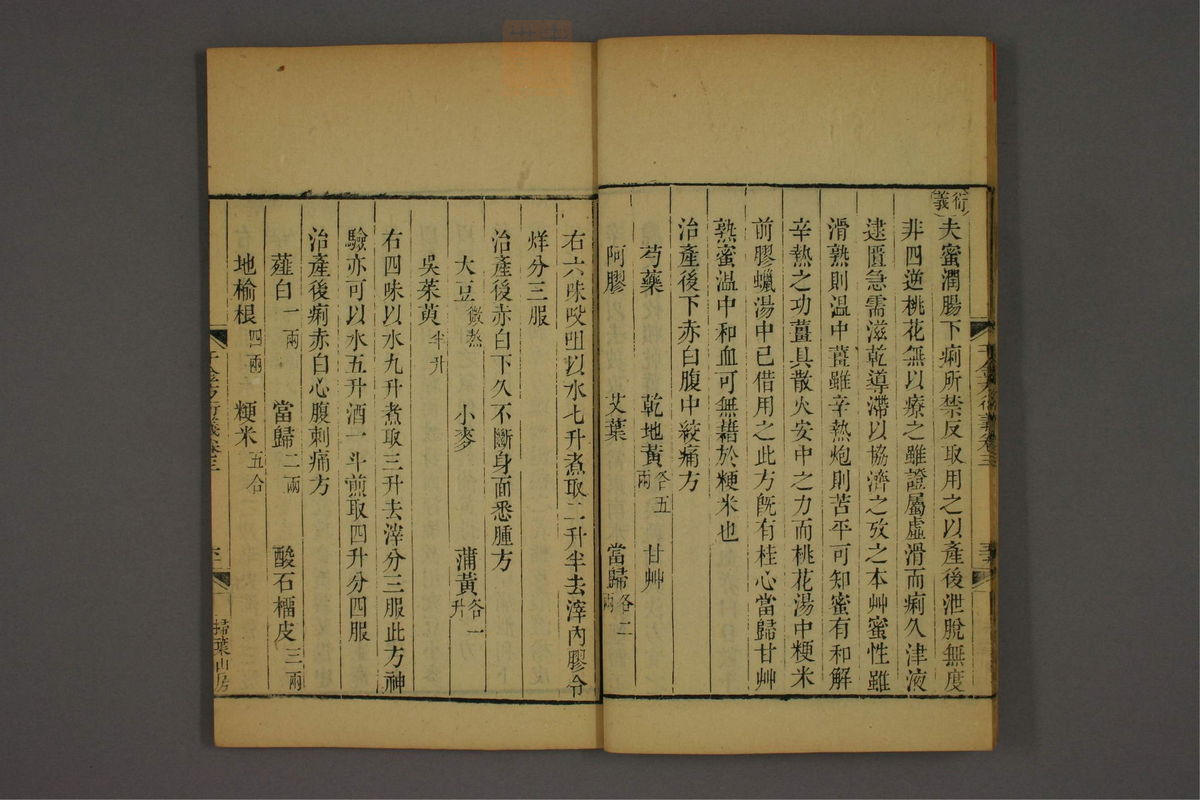 衍義
夫蜜潤腸下痢所禁反取用之以產後泄脫無度
非四逆桃花無以療之雖證屬虛滑而痢久津液
逮匱急需滋乾導滯以協濟之攷之本艸蜜性雖
滑熟則温中薑雖辛熱炮則苦平可知蜜有和解
辛熱之功薑具散火安中之力而桃花湯中粳米
前膠蠟湯中已借用之此方既有桂心當歸甘艸
熟蜜温中和血可無藉於粳米也
治產後下赤白腹中絞痛方
芍藥 乾地黃各五兩 甘艸
阿膠 艾葉 當歸各二兩
千金方衍義卷三
右六味㕮咀以水七升煮取二升半去滓內膠令
烊分三服
治產後赤白下久不斷身面悉腫方
大豆微熬 小麥 蒲黃各一升
吳茱萸半升
右四味以水九升煮取三升去滓分三服此方神
驗亦可以水五升酒一斗煎取四升分四服
治產後痢赤白心腹刺痛方
薤白一兩 當歸二兩 酸石榴皮三兩
地榆根四兩 粳米五合
千金方衍義卷三
掃葉山房